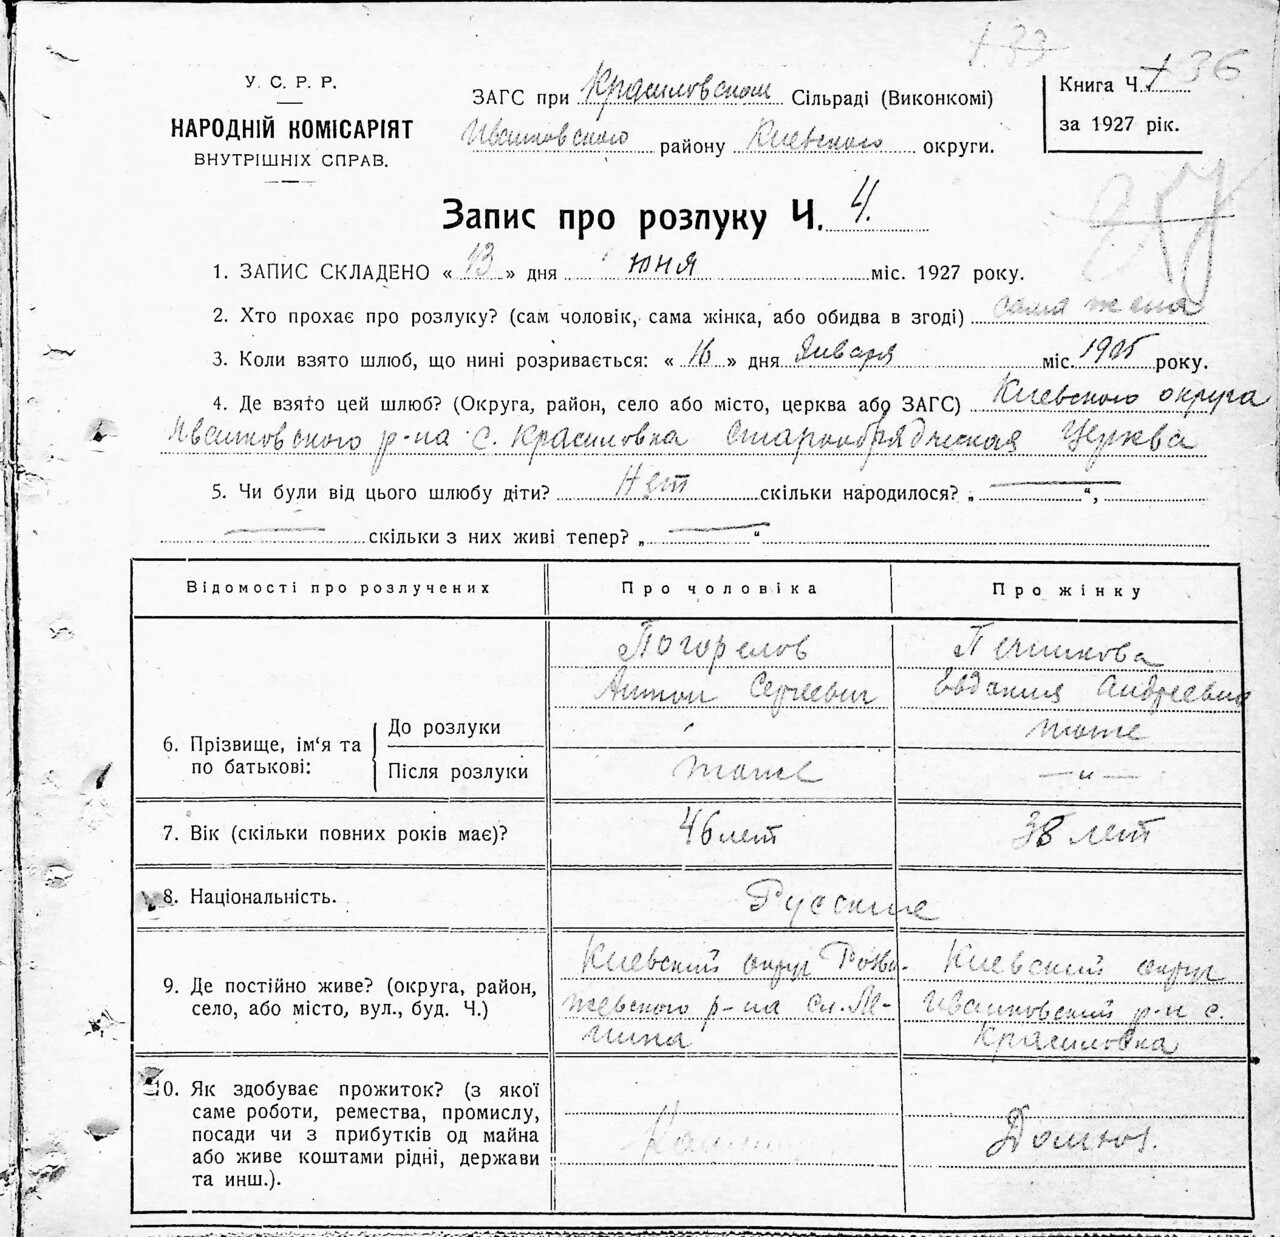 У. С. Р. Р.
НАРОДНІЙ КОМІСАРІЯТ
ВНУТРІШНІХ СПРАВ.
ЗАГС при Красиловском Сільраді (Виконкомі)
Иванковского району Киевского округи.
Книга Ч.
за 1927 рік.
36
Запис про розлуку Ч. 4.
1. ЗАПИС СКЛАДЕНО « 13 » дня июня міс. 1927 року.
2. Хто прохає про розлуку? (сам чоловік, сама жінка, або обидва в згоді) сама жена
3. Коли взято шлюб, що нині розривається: « 16 » дня Января міс. 1905 року.
4. Де взято цей шлюб? (Округа, район, село або місто, церква або ЗАГС) Киевского округа
Иванковского р-на с. Красиловка Старообрядческая Церква
5. Чи були від цього шлюбу діти? Нет скільки народилося? „ — “,
— скільки з них живі тепер? „ — “
Відомості про розлучених
Про чоловіка
Про жінку
6. Прізвище, ім‘я та по батькові:
До розлуки
Після розлуки
Погорелов
Антон Сергеевич
тоже
Евдакия Андреевна
тоже
— „ —
7. Вік (скільки повних років має)?
46 лет
38 лет
8. Національність.
Русские
9. Де постійно живе? (округа, район,
село, або місто, вул., буд. Ч.)
Киевский округ Розва-
жевского р-на
Киевский округ
Иванковский р-н с.
Красиловка
10. Як здобуває прожиток? (з якої
саме роботи, ремества, промислу,
посади чи з прибутків од майна
або живе коштами рідні, держави
та инш.).
Домхоз.